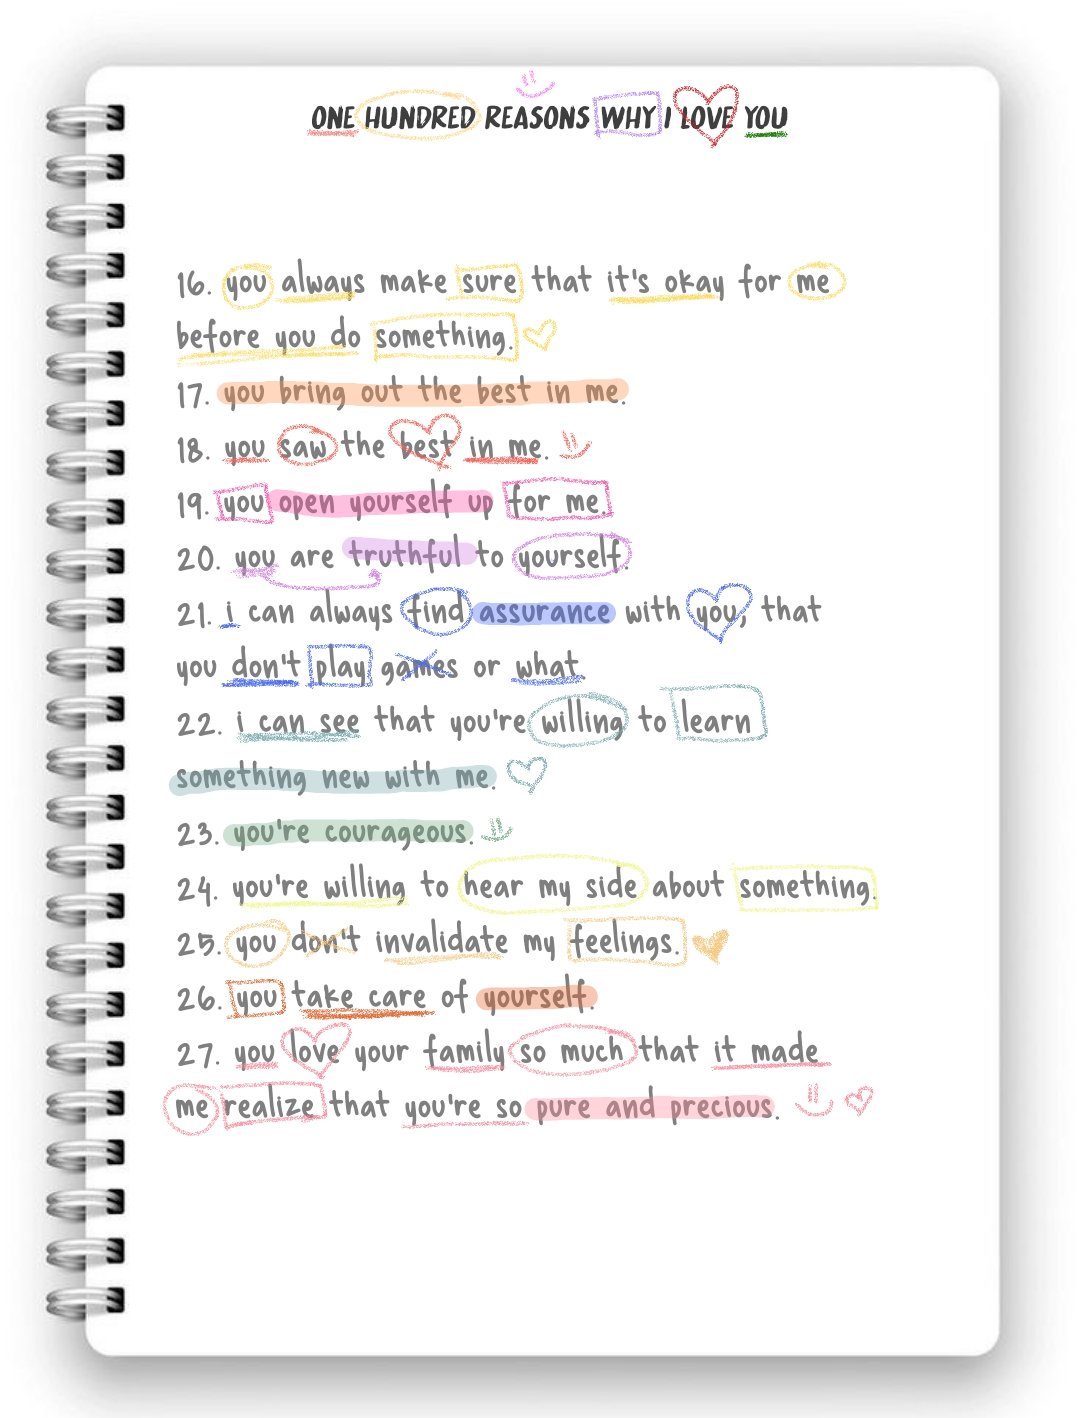 ONE HUNDRED REASONS WHY I LOVE YOU
16. you always make sure that it's okay for me
before you do something.
17. you bring out the best in me.
18. you saw the best in me.
19. you open yourself up for me.
20. you are truthful to yourself.
21. i can always find assurance with you, that
you don't play games or what
22. i can see that you're willing to learn
something new with me.
23. you're courageous.
24. you're willing to hear my side about something.
25. you don't invalidate my feelings.
26. you take care of yourself.
27. you love your family so much that it made
me realize that you're so pure and precious.